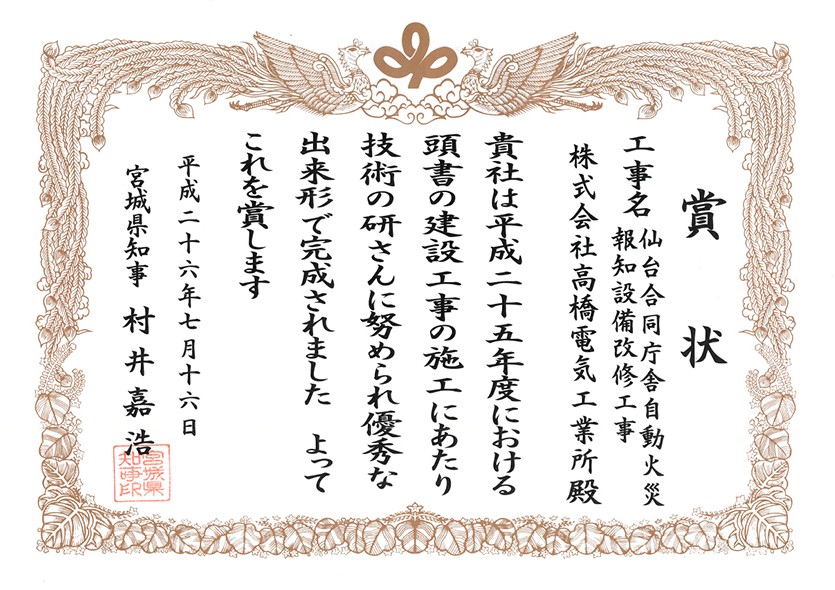 賞状
工事名 仙台合同庁舎自動火災
報知設備改修工事
株式会社高橋電気工業所殿
貴社は平成二十五年度における
頭書の建設工事の施工にあたり
技術の研さんに努められ優秀な
出来形で完成されました よって
これを賞します
平成二十六年七月十六日
宮城県知事 村井嘉浩
宮城県
知事印